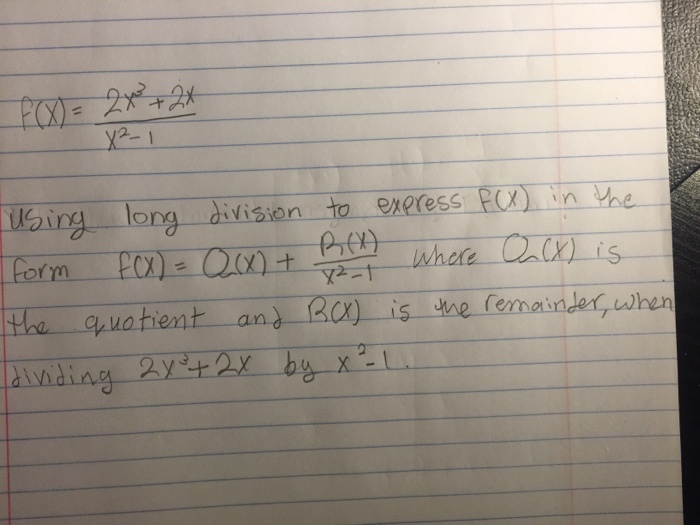 f(x) = 2x³ + 2x / x² - 1
using long division to express f(x) in the
form f(x) = Q(x) + R(x) / x² - 1 where Q(x) is
the quotient and R(x) is the remainder, when
dividing 2x³ + 2x by x² - 1.